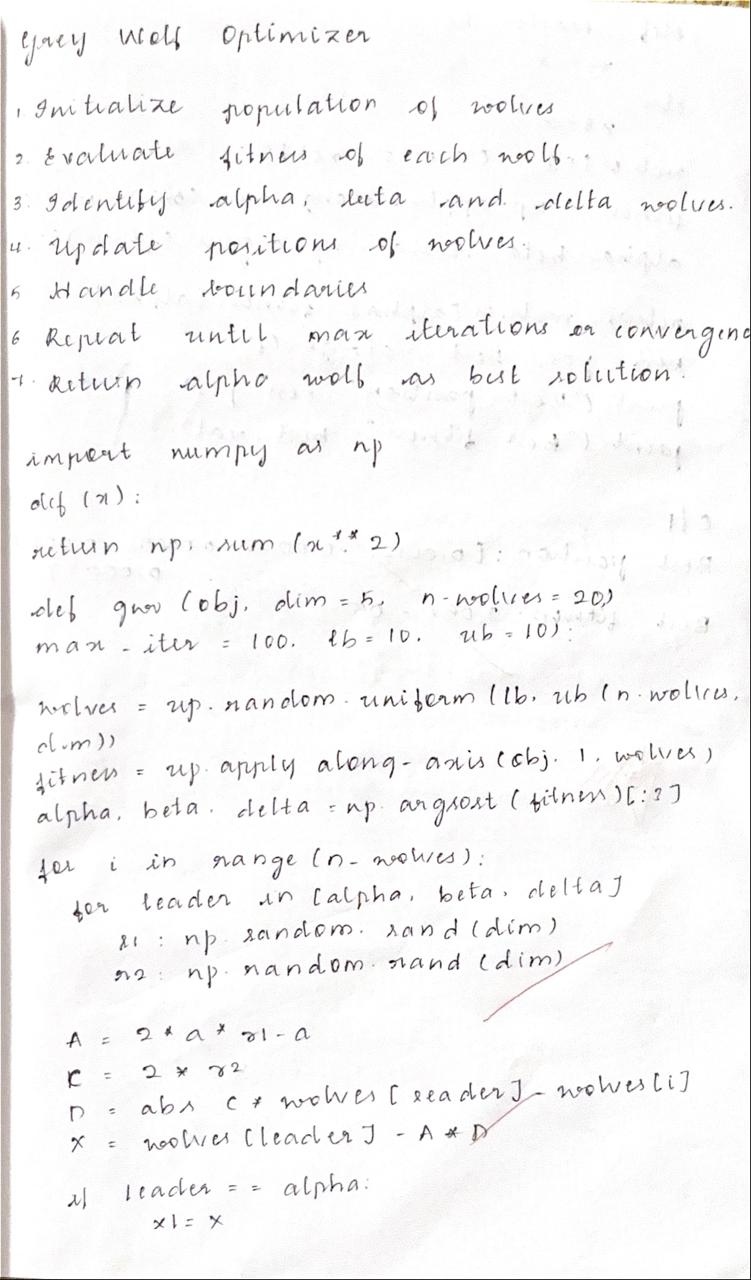 Grey Wolf Optimizer
1. Initialize population of wolves
2. Evaluate fitness of each wolf.
3. Identify alpha, beta and delta wolves.
4. Update positions of wolves.
5 Handle boundaries
6 Repeat until max iterations or convergenc
7. Return alpha wolf as best solution.
import numpy as np
def (x):
return np. sum (x ** 2)
def gwo (obj, dim = 5, n-wolves = 20,
max - iter = 100. lb = 10. ub = 10):
wolves = np. random. uniform (lb, ub (n. wolves,
dim))
fitness = np. apply along- axis (obj. 1. wolves)
alpha, beta. delta = np. argsort (fitness)[:3]
for i in range (n- wolves):
for leader in [alpha, beta, delta]
r1 : np. random. rand (dim)
r2 : np. random. rand (dim)
A = 2 * a * r1 - a
C = 2 * r2
D = abs C * wolves [leader] - wolves [i]
X = wolves [leader] - A * D
if leader = = alpha:
x1 = X